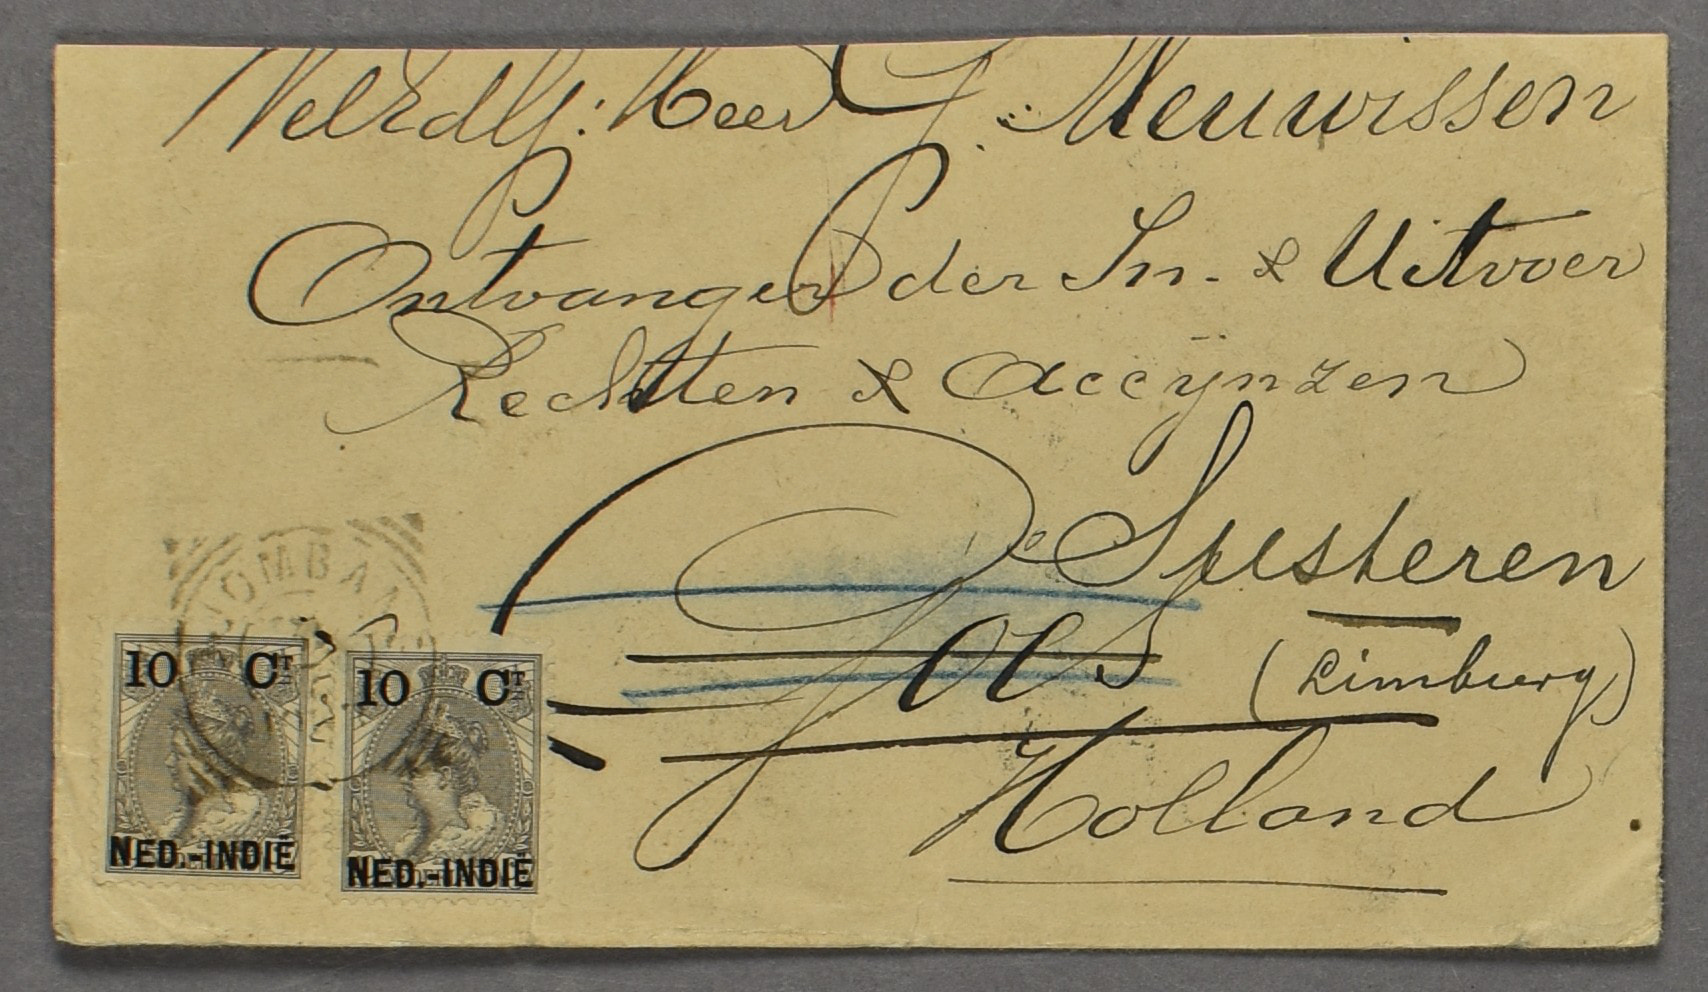 WelEdG: Heer G. Meuwissen
Ontvanger der In- & Uitvoer
Rechten & Accijnzen
Susteren
Goes
(Limburg)
Holland
JOMBANG
10 CT
NED.-INDIË
10 CT
NED.-INDIË